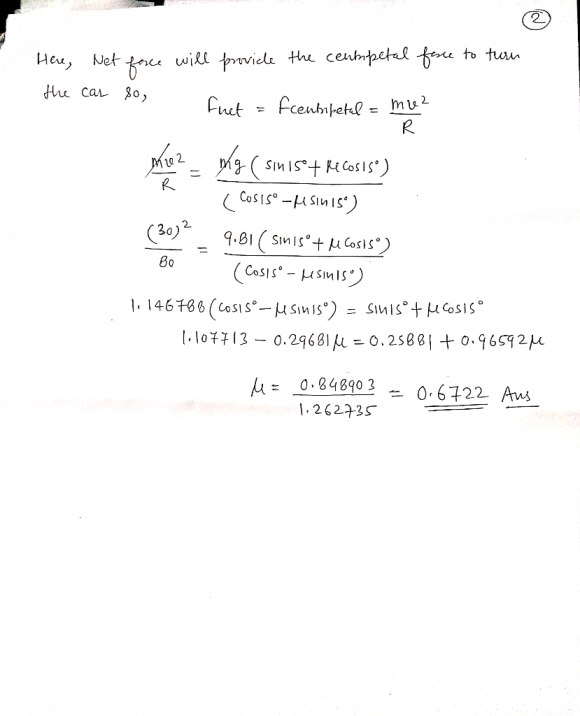 2
Here, Net force will provide the centripetal force to turn
the car so,
Fnet = Fcentripetal = mv²/R
mv²/R = mg(sin15°+μcos15°)/(cos15°-μsin15°)
(30)²/80 = 9.81(sin15°+μcos15°)/(cos15°-μsin15°)
1.146788(cos15°-μsin15°) = sin15°+μcos15°
1.107713 - 0.29681μ = 0.25881 + 0.96592μ
μ = 0.848903/1.262735 = 0.6722 Ans